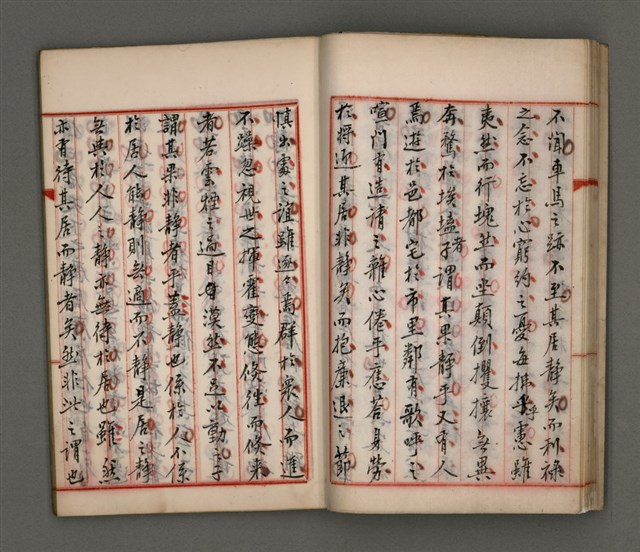 不聞車馬之跡不至其居靜矣而利祿
之念不忘於心窮約之憂每拂乎慮雖
夷然而行塊然而坐顛倒攪攘無異
奔騖於埃壒者子謂其果靜乎又有人
焉遊於邑都宅於市里鄰有歌呼之
喧門有造請之雜心倦乎應答身勞
於將迎其居非靜矣而抱廉退之節
慎出處之誼雖逐々焉群於衆人而進
不躁忽視世之揮霍變態倏往而倏來
者若雲煙之過目每漠然不足以動之子
謂其果非靜者乎蓋靜也係於人不係
於居人能靜則無適而不靜是居之靜
無與於人人之靜亦無待於居也雖然
亦有待其居而靜者矣然非此之謂也